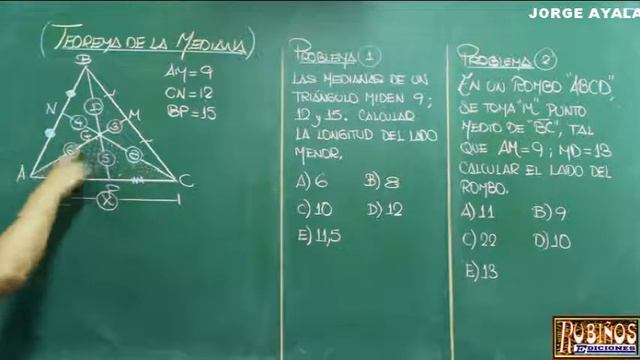 JORGE AYALA
(TEOREMA DE LA MEDIANA)
B
N
M
A
P
C
G
X
AM = 9
CN = 12
BP = 15
PROBLEMA 1
LAS MEDIANAS DE UN
TRIÁNGULO MIDEN 9;
12 y 15. CALCULAR
LA LONGITUD DEL LADO
MENOR.
A) 6 B) 8
C) 10 D) 12
E) 11,5
PROBLEMA 2
EN UN ROMBO "ABCD"
SE TOMA "M" PUNTO
MEDIO DE "BC", TAL
QUE AM = 9; MD = 13
CALCULAR EL LADO DEL
ROMBO.
A) 11 B) 9
C) 22 D) 10
E) 13
RUBIÑOS
EDICIONES